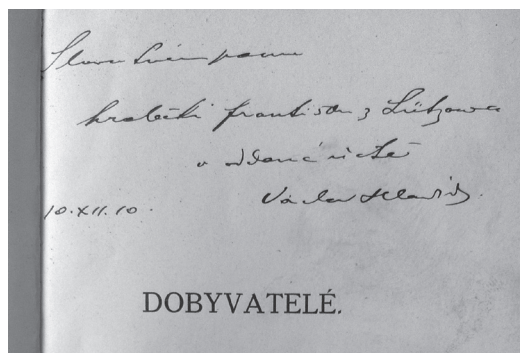 Slovutnému panu
hraběti Františku z Lützowů
v oddané úctě
Václav Hladík.
10.XII.10.
DOBYVATELÉ.